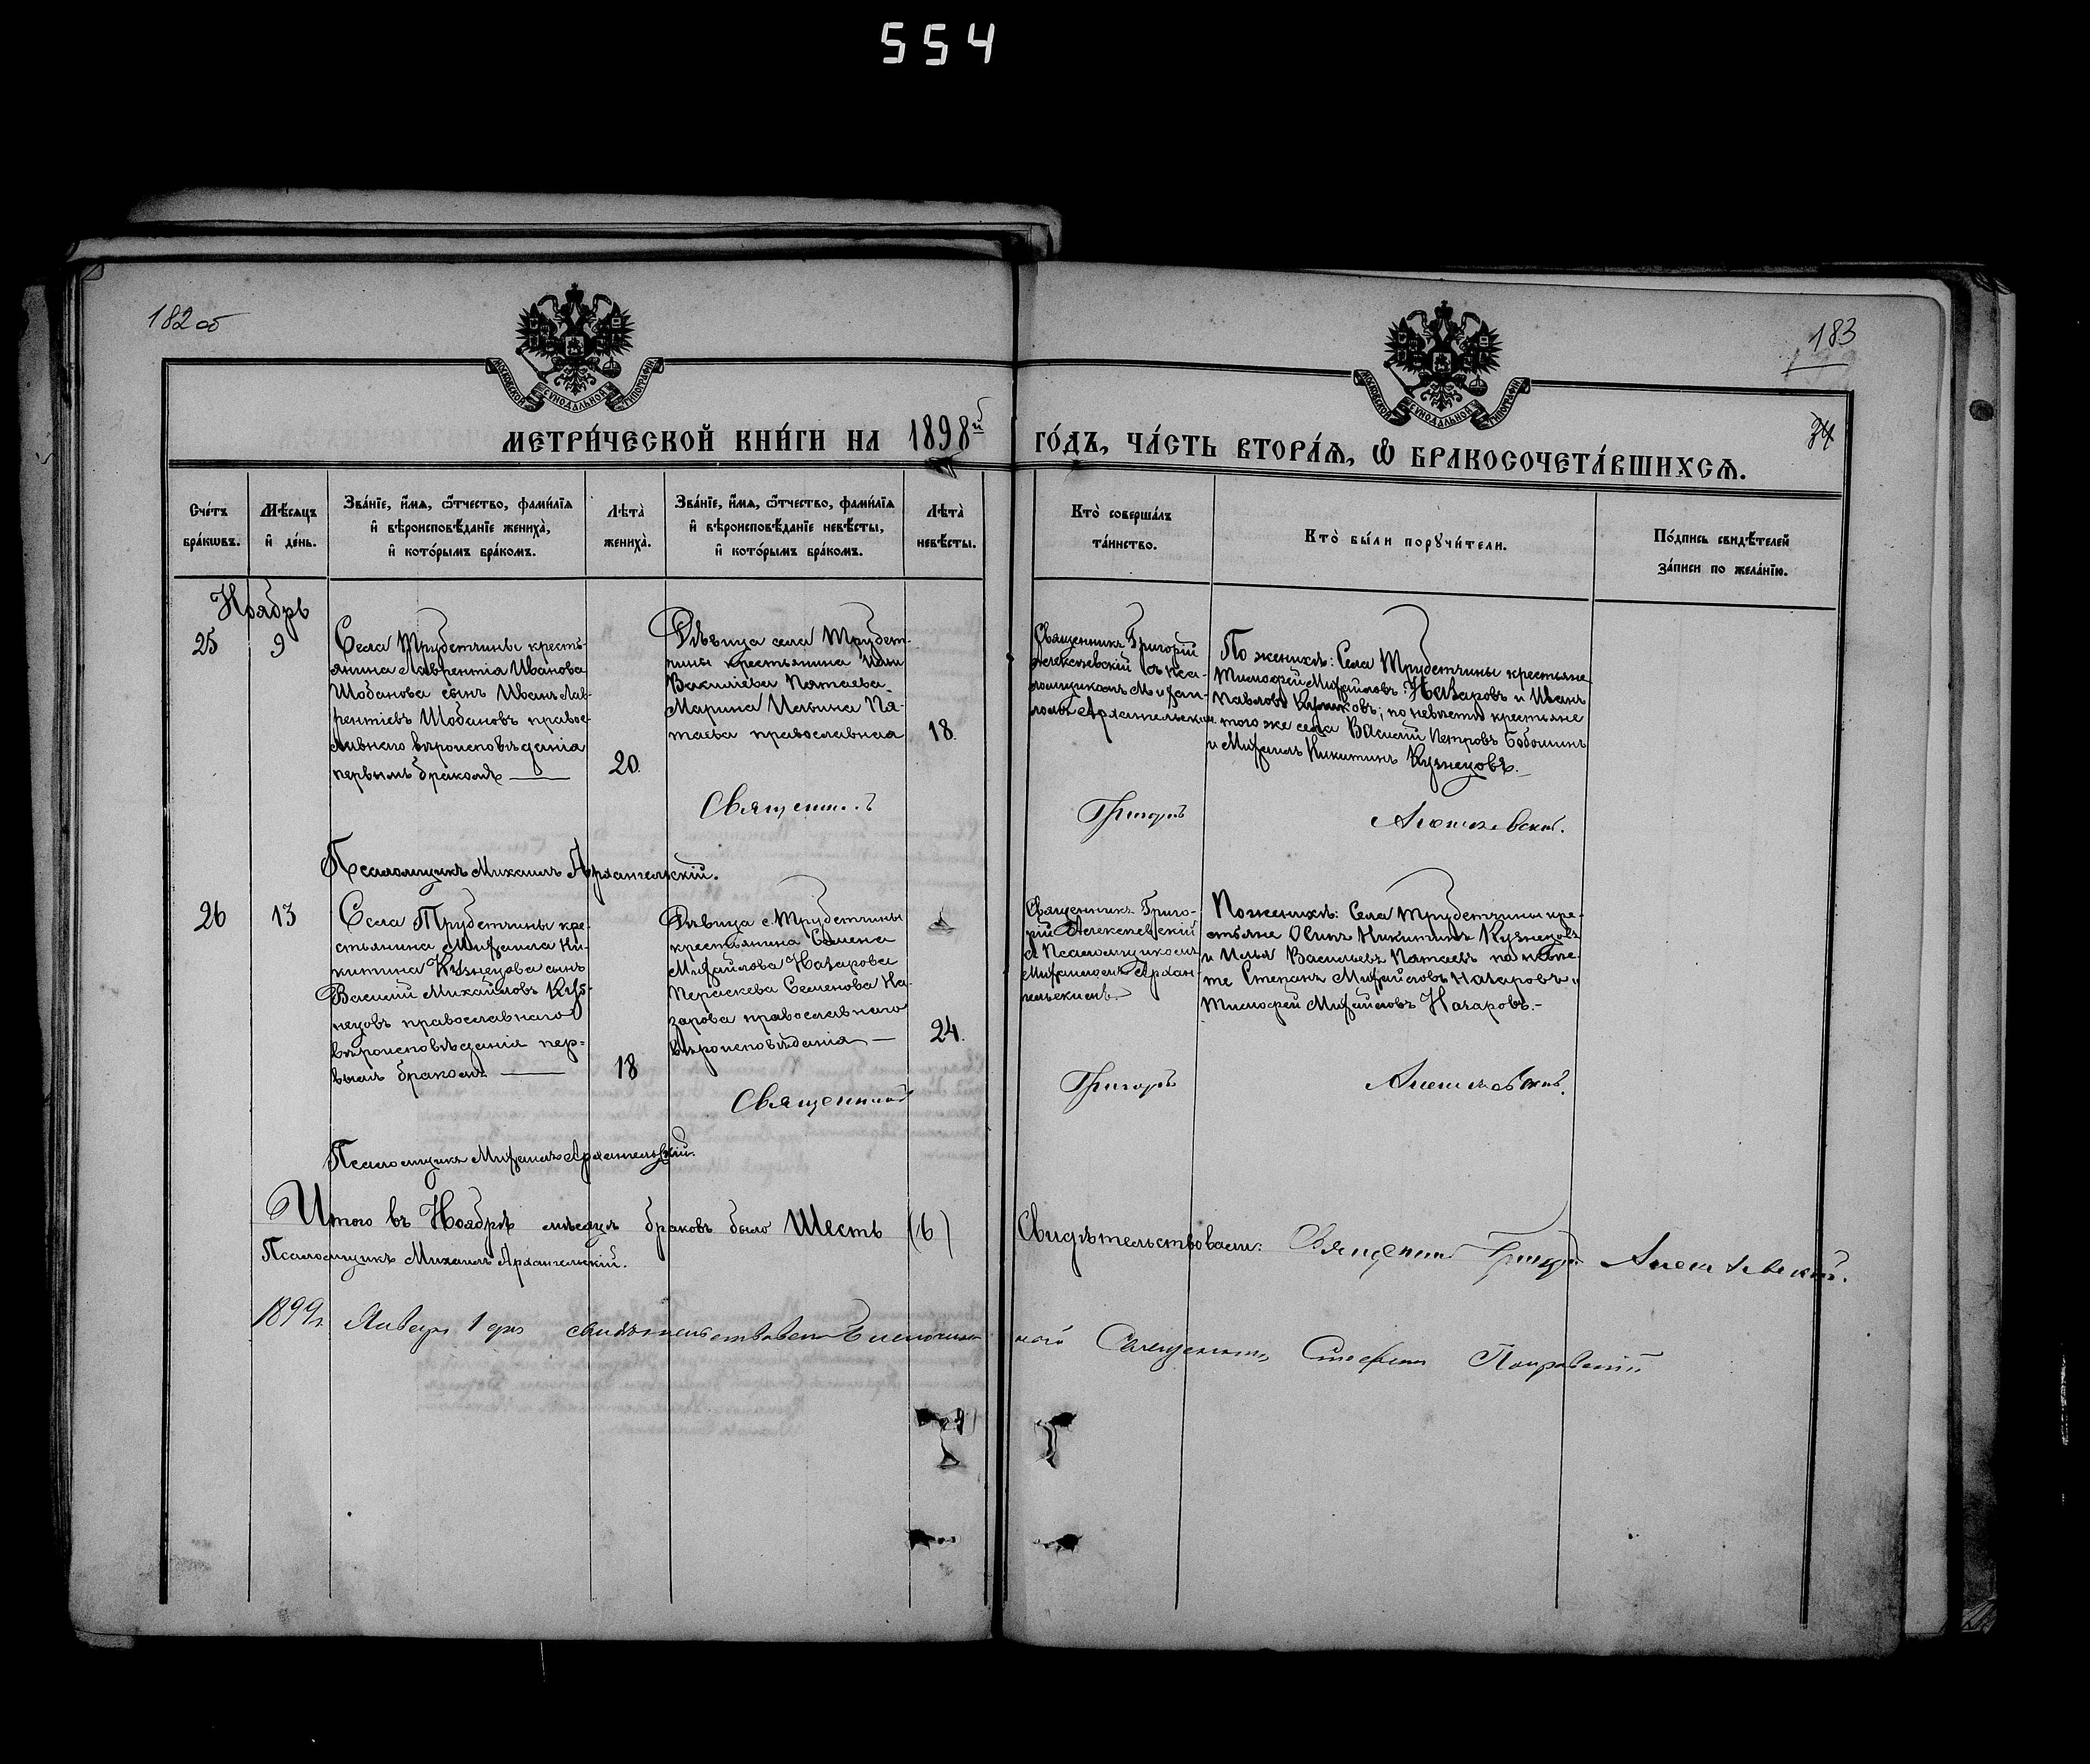 554
182 об
183
34
МОСКОВСКОЙ СѴНОДАЛЬНОЙ ТИПОГРАФІИ
МОСКОВСКОЙ СѴНОДАЛЬНОЙ ТИПОГРАФІИ
МЕТРИ́ЧЕСКОЙ КНИ́ГИ НА 1898й ГО́ДЪ, ЧА́СТЬ ВТОРА́Ѧ, Ѡ҆ БРАКОСОЧЕТА́ВШИХСѦ.
Сче́тъ
бра́кѡвъ.
Мѣ́сѧцъ
и҆ де́нь.
Зва́нїе, и҆́мѧ, ѻ҆́тчество, фами́лїѧ
и҆ вѣроисповѣ́данїе жениха̀,
и҆ кото́рымъ бра́комъ.
Лѣта̀
жениха̀.
Зва́нїе, и҆́мѧ, ѻ҆́тчество, фами́лїѧ
и҆ вѣроисповѣ́данїе невѣ́сты,
и҆ кото́рымъ бра́комъ.
Лѣта̀
невѣ́сты.
Кто̀ соверша́лъ
та́инство.
Кто̀ бы́ли порꙋчи́тели.
По́дпись свидѣ́телей
за́писи по жела́нїю.
Ноябрь
25
9
Села Трубетчины кресть-
янина Лаврентія Иванова
Шобанова сынъ Иванъ Лав-
рентіевъ Шобановъ правос-
лавнаго вѣроисповѣданія
первымъ бракомъ
20.
Дѣвица села Трубет-
чины крестьянина Ильи
Василіева Пятаева
Марина Ильина Пя-
таева православная
18.
Священникъ Григорій
Алексѣевскій съ Пса-
ломщикомъ Михаи-
ломъ Архангельским
По женихѣ: Села Трубетчины крестьяне
Тимофей Михайловъ Назаровъ и Иванъ
Павловъ Куликовъ; по невѣстѣ крестьяне
того же села Василій Петровъ Бобошинъ
и Михаилъ Никитинъ Кузнецовъ.
Священникъ Григорій Алексѣевскій.
Псаломщикъ Михаилъ Архангельскій.
26
13
Села Трубетчины кре-
стьянина Михаила Ни-
китина Кузнецова сынъ
Василій Михайловъ Куз-
нецовъ православнаго
вѣроисповѣданія пер-
вымъ бракомъ
18
Дѣвица с. Трубетчины
крестьянина Семена
Михайлова Назарова
Параскева Семенова На-
зарова православнаго
вѣроисповѣданія
24.
Священникъ Григо-
рій Алексѣевскій
съ Псаломщикомъ
Михаиломъ Архан-
гельскимъ.
По женихѣ: Села Трубетчины кре-
стьяне Осипъ Никитинъ Кузнецовъ
и Илья Васильевъ Пятаевъ по невѣс-
те Степанъ Михайловъ Назаровъ и
Тимофей Михайловъ Назаровъ.
Священникъ Григорій Алексѣевскій.
Псаломщикъ Михаилъ Архангельскій.
Итого въ Ноябрѣ мѣсяцѣ браковъ было Шесть (6)
Свидѣтельствовали: Священникъ Григорій Алексѣевскій.
Псаломщикъ Михаилъ Архангельскій.
1899 г. Января 1 дня свидѣтельствовалъ Благочинный Священникъ Стефанъ Покровскій